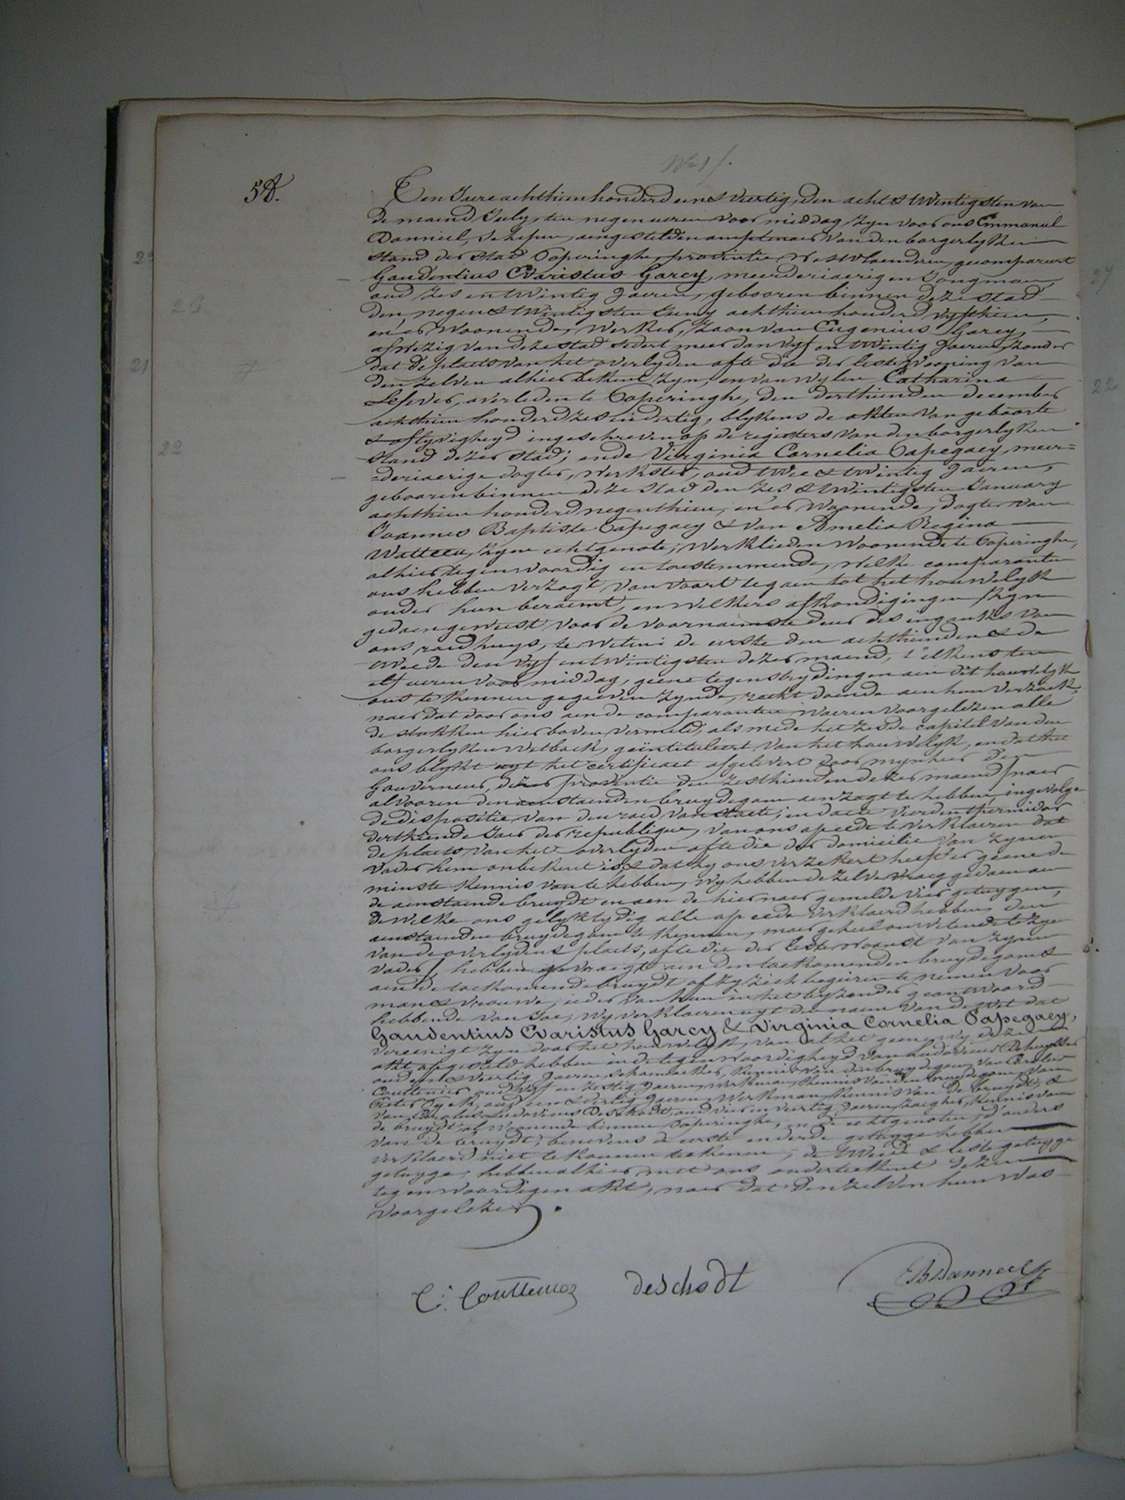 58.
Den Jaere achthien honderd een & veertig, den acht & twintigsten van
de maend July, ten negen uren voor middag, zyn voor ons Emmanuel
Danneel, schepen, aengestelden amptenaer van den borgerlyken
stand der stad Poperinghe, provintie Westvlaenderen, gecompareert
Gaudentius Evaristus Garcy, meerderjaerigen Jongman,
oud zes en twintig Jaeren, gebooren binnen deze stad
den negen & twintigsten Juny achthien honderd vyfthien,
en er woonende, werker, zoon van Eugenius Garcy,
afwezig van deze stad sedert meer dan vyf en twintig Jaeren, zonder
dat de plaets van het overlyden ofte die der leste wooning van
den zelven alhier bekent zyn, en van wylen Catharina
overleden te Poperinghe, den derthienden december
achthien honderd zes en dertig, blykens de akten van geboorte
& aflyvigheyd ingeschreven op de registers van den borgerlyken
stand dezer stad; ende Virginia Cornelia Papegaey, meer-
derjaerige dogter, werkster, oud twee & twintig Jaeren,
gebooren binnen deze stad den zes & twintigsten January
achthien honderd negenthien, en er woonende, dogter van
Joannes Baptiste Papegaey & van Amelia Regina
Watteeu, zyne echtgenote, werklieden woonende te Poperinghe,
alhier tegenwoordig en toestemmende, welke comparanten
ons hebben verzogt van voort te gaen tot het houwelyk
onder hun beraemt, en welkers afkondigingen zyn
gedaen geweest voor de voornaemste deur des ingangs van
ons raedhuys, te weten: de eerste den achthienden & de
tweede den vyf en twintigsten dezer maend, t'elkens ten
elf uren voor middag, geene tegenstrydigheyd aen dit houwelyk
ons te kennen gegeven zynde, recht doende aen hun verzoek,
naer dat door ons aen de comparanten waeren voorgelezen alle
de stukken hier boven vermeld, als mede het zesde capitel van den
borgerlyken wetboek, geintituleert van het houwelyk, en dat het
ons blykt uyt het certificaet afgelevert door mynheer den
Gouverneur dezer provintie den zesthienden dezer maend, naer
alvooren den aenstaenden bruydegom aenzogt te hebben ingevolge
de dispositie van den raed van staete, in date vierden thermidor
derthiende Jaer der republique, van ons op eede te verklaeren dat
de plaets van het overlyden ofte die der domicilie van zynen
vader hem onbekent is, & dat hy ons verzekert heeft er geene de
minste kennis van te hebben, wy hebben de zelve vraeg gedaen aen
de aenstaende bruydt en aen de hier naer gemelde vier getuygen,
de welke ons gelyktydig alle op eede verklaerd hebben den
aenstaenden bruydegom te kennen, maer geheel onwetende te zyn
van de overlydens plaets, ofte die der leste woonst van zynen
vader, hebben gevraegt aen den toekomenden bruydegom &
aen de toekomende bruydt of zy zich begeiren te nemen voor
man & vrouwe, ieder van hun in het byzonder geantwoord
hebbende van Jae, wy verklaeren uyt de naem van de wet dat
Gaudentius Evaristus Garcy & Virginia Cornelia Papegaey,
vereenigt zyn door het houwelyk, van al het geen wy deze
akt opgesteld hebben in de tegenwoordigheyd van Ludovicus
oud een & veertig Jaeren, schoenmaker, kennis van den bruydegom, van Carolus
Couttenier, oud vyf en zestig Jaeren, werkman, kennis van den bruydegom, van
Pieter oud een & dertig Jaeren, werkman, kennis van de bruydt, &
van Ludovicus Deschodt, oud vier en veertig Jaeren, kennis van
de bruydt, al woonende binnen Poperinghe, ende echtgenoten, d'ouders
van de bruydt, benevens de eerste en derde getuyge hebben
verklaerd niet te konnen teekenen, de tweede & leste getuyge
getuyge, hebben alhier met ons onderteekent dezen
tegenwoordigen akt, naer dat den zelven hun was
voorgelezen.
C: Couttenier deschodt EDanneel